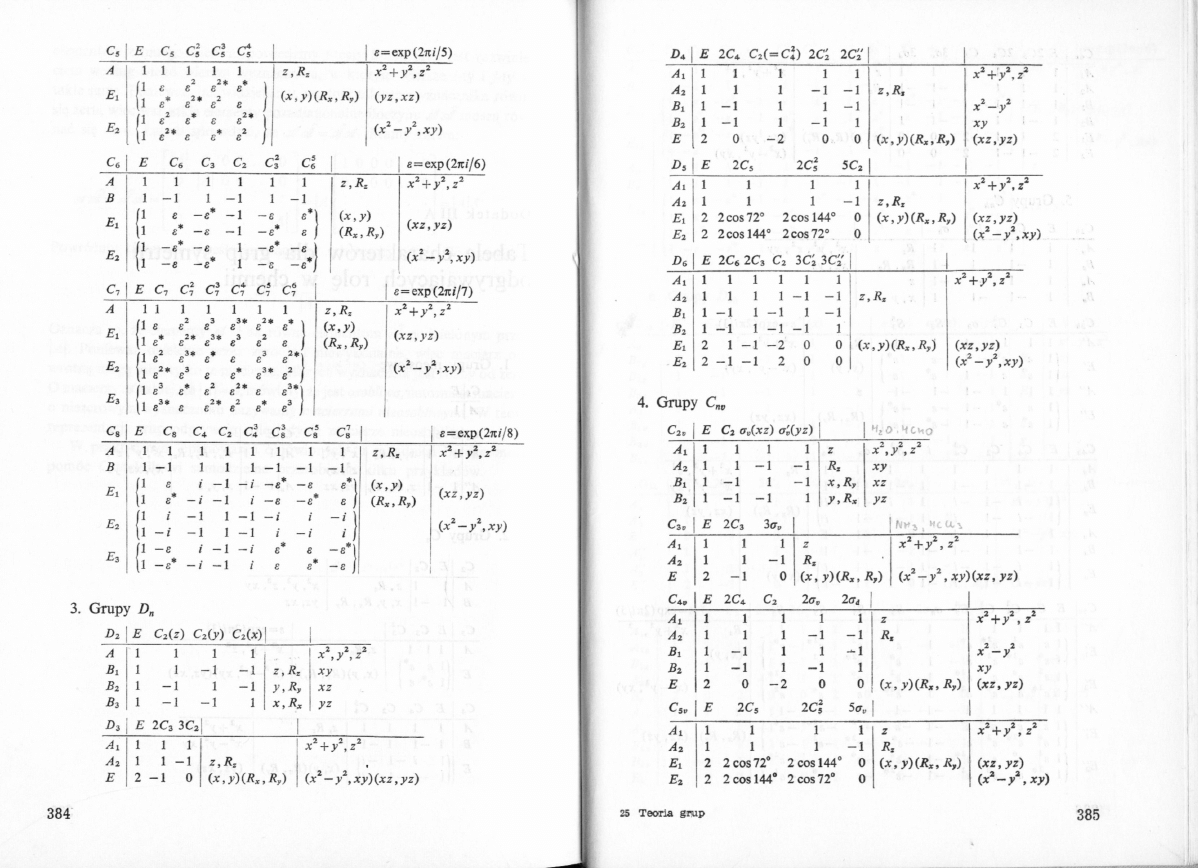 C₅ | E C₅ C₅² C₅³ C₅⁴ | | ε=exp(2πi/5)
A | 1 1 1 1 1 | z, R_z | x²+y², z²
E₁ | {1 ε ε² ε²* ε* | (x, y)(Rₓ, R_y) | (yz, xz)
{1 ε* ε²* ε² ε }
E₂ | {1 ε² ε* ε ε²* | | (x²−y², xy)
{1 ε²* ε ε* ε² }
C₆ | E C₆ C₃ C₂ C₃² C₆⁵ | | ε=exp(2πi/6)
A | 1 1 1 1 1 1 | z, R_z | x²+y², z²
B | 1 −1 1 −1 1 −1
E₁ | {1 ε −ε* −1 −ε ε*} | (x, y) | (xz, yz)
{1 ε* −ε −1 −ε* ε } | (Rₓ, R_y)
E₂ | {1 −ε* −ε 1 −ε* −ε } | | (x²−y², xy)
{1 −ε −ε* 1 −ε −ε*}
C₇ | E C₇ C₇² C₇³ C₇⁴ C₇⁵ C₇⁶ | | ε=exp(2πi/7)
A | 1 1 1 1 1 1 1 | z, R_z | x²+y², z²
E₁ | {1 ε ε² ε³ ε³* ε²* ε* } | (x, y) | (xz, yz)
{1 ε* ε²* ε³* ε³ ε² ε } | (Rₓ, R_y)
E₂ | {1 ε² ε³* ε* ε ε³ ε²*} | | (x²−y², xy)
{1 ε²* ε³ ε ε* ε³* ε² }
E₃ | {1 ε³ ε* ε² ε²* ε ε³*}
{1 ε³* ε ε²* ε² ε* ε³ }
C₈ | E C₈ C₄ C₂ C₄³ C₈³ C₈⁵ C₈⁷ | | ε=exp(2πi/8)
A | 1 1 1 1 1 1 1 1 | z, R_z | x²+y², z²
B | 1 −1 1 1 1 −1 −1 −1
E₁ | {1 ε i −1 −i −ε* −ε ε*} | (x, y) | (xz, yz)
{1 ε* −i −1 i −ε −ε* ε } | (Rₓ, R_y)
E₂ | {1 i −1 1 −1 −i i −i} | | (x²−y², xy)
{1 −i −1 1 −1 i −i i}
E₃ | {1 −ε i −1 −i ε* ε −ε*}
{1 −ε* −i −1 i ε ε* −ε }
3. Grupy Dₙ
D₂ | E C₂(z) C₂(y) C₂(x)
A | 1 1 1 1 | | x², y², z²
B₁ | 1 1 −1 −1 | z, R_z | xy
B₂ | 1 −1 1 −1 | y, R_y | xz
B₃ | 1 −1 −1 1 | x, Rₓ | yz
D₃ | E 2C₃ 3C₂
A₁ | 1 1 1 | | x²+y², z²
A₂ | 1 1 −1 | z, R_z
E | 2 −1 0 | (x, y)(Rₓ, R_y) | (x²−y², xy)(xz, yz)
384
D₄ | E 2C₄ C₂(=C₄²) 2C₂′ 2C₂″
A₁ | 1 1 1 1 1 | | x²+y², z²
A₂ | 1 1 1 −1 −1 | z, R_z
B₁ | 1 −1 1 1 −1 | | x²−y²
B₂ | 1 −1 1 −1 1 | | xy
E | 2 0 −2 0 0 | (x, y)(Rₓ, R_y) | (xz, yz)
D₅ | E 2C₅ 2C₅² 5C₂
A₁ | 1 1 1 1 | | x²+y², z²
A₂ | 1 1 1 −1 | z, R_z
E₁ | 2 2 cos 72° 2 cos 144° 0 | (x, y)(Rₓ, R_y) | (xz, yz)
E₂ | 2 2 cos 144° 2 cos 72° 0 | | (x²−y², xy)
D₆ | E 2C₆ 2C₃ C₂ 3C₂′ 3C₂″
A₁ | 1 1 1 1 1 1 | | x²+y², z²
A₂ | 1 1 1 1 −1 −1 | z, R_z
B₁ | 1 −1 1 −1 1 −1
B₂ | 1 −1 1 −1 −1 1
E₁ | 2 1 −1 −2 0 0 | (x, y)(Rₓ, R_y) | (xz, yz)
E₂ | 2 −1 −1 2 0 0 | | (x²−y², xy)
4. Grupy Cₙᵥ
C₂ᵥ | E C₂ σᵥ(xz) σᵥ′(yz) | | H₂O
A₁ | 1 1 1 1 | z | x², y², z²
A₂ | 1 1 −1 −1 | R_z | xy
B₁ | 1 −1 1 −1 | x, R_y | xz
B₂ | 1 −1 −1 1 | y, Rₓ | yz
C₃ᵥ | E 2C₃ 3σᵥ | | NH₃, HCCl₃
A₁ | 1 1 1 | z | x²+y², z²
A₂ | 1 1 −1 | R_z
E | 2 −1 0 | (x, y)(Rₓ, R_y) | (x²−y², xy)(xz, yz)
C₄ᵥ | E 2C₄ C₂ 2σᵥ 2σ_d
A₁ | 1 1 1 1 1 | z | x²+y², z²
A₂ | 1 1 1 −1 −1 | R_z
B₁ | 1 −1 1 1 −1 | | x²−y²
B₂ | 1 −1 1 −1 1 | | xy
E | 2 0 −2 0 0 | (x, y)(Rₓ, R_y) | (xz, yz)
C₅ᵥ | E 2C₅ 2C₅² 5σᵥ
A₁ | 1 1 1 1 | z | x²+y², z²
A₂ | 1 1 1 −1 | R_z
E₁ | 2 2 cos 72° 2 cos 144° 0 | (x, y)(Rₓ, R_y) | (xz, yz)
E₂ | 2 2 cos 144° 2 cos 72° 0 | | (x²−y², xy)
25 Teoria grup
385